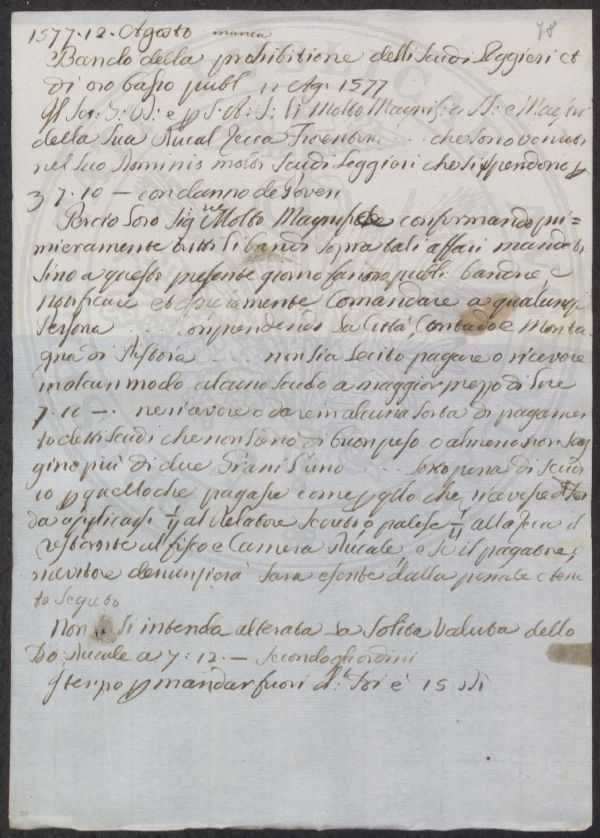 78
1577. 12. Agosto manca
Bando della prohibitione delli scudi Leggieri et
di oro basso publ. 12 Ag. 1577
Molto Magnifici SS: e Maestri
della Sua Ducal Zecca Fiorentin. .. che sono venuti
nel suo Dominio molti scudi leggieri che si spendono p
7. 10 — con danno de Poveri
Perciò Loro Sig. Molto Magnifiche confermando pri=
mieramente tutti li bandi sopra tali affari mandati
sino a questo presente giorno fanno publ. bandire e
notificare et espressamente Comandare a qualunq
Persona . . . comprendendo la Città, Contado e Monta
gna di Pistoia . . . non sia lecito pagare o ricevere
in alcun modo alcuno scudo a maggior prezzo di Lire
7. 10 —. ne ricevere o dare in alcuna sorta di pagamen
to detti scudi che non siano di buon peso o almeno non scag
gino più di due Grani l'uno . . . sotto pena di scudi
10 p quello che pagasse come p quello che ricevesse
da applicarsi al Relatore secreto, o palese alla Zecca il
restante al fisco e Camera Ducale, e se il pagatore, o
ricevitore denunzierà sarà esente dalla penale e tenu
to segreto
Non si intenda alterata la solita valuta dello
Ducale a 7: 12. — secondo gli ordini
tempo p mandar fuori d. è 15 dì